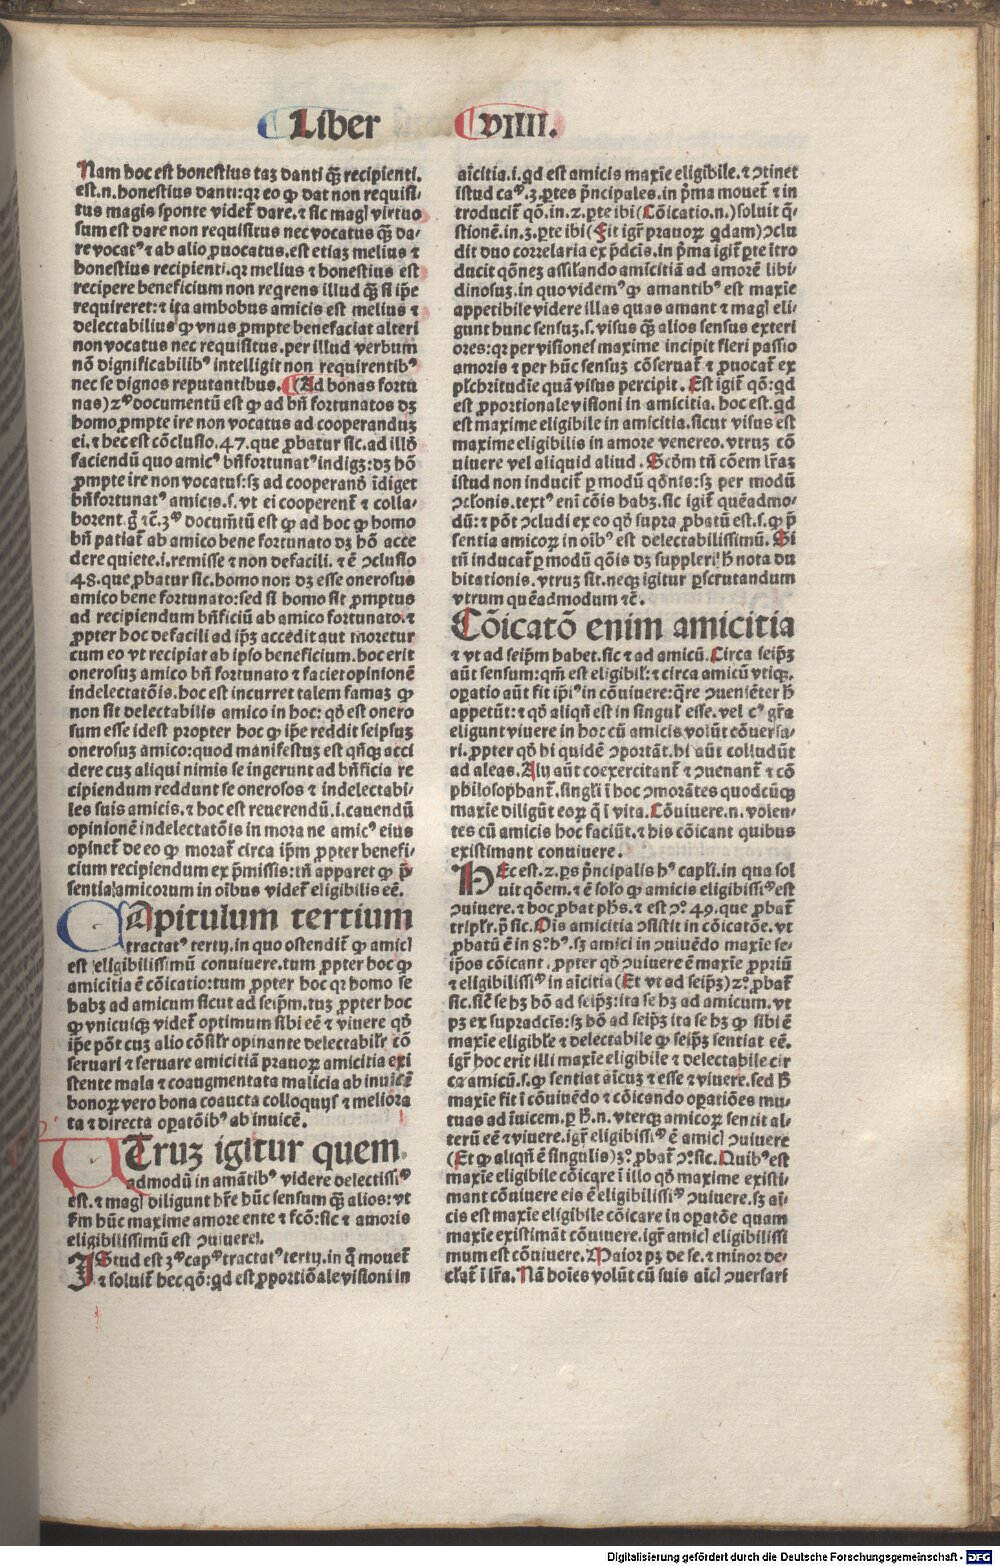 Liber VIIII.
Nam hoc est honestius taʒ danti qʒ̃ recipienti.
est.n.honestius danti:qꝛ eo ꝙ dat non requisi-
tus magis sponte videt̃ dare.⁊ sic magl virtuo
sum est dare non requisitus nec vocatus qʒ̃ da-
re vocatꝰ ⁊ ab alio ꝓuocatus.est etiaʒ melius ⁊
honestius recipienti.qꝛ melius ⁊ honestius est
recipere beneficium non reqrens illud qʒ̃ si ip̃e
requireret:⁊ ita ambobus amicis est melius ⁊
delectabilius ꝙ vnus ꝓmpte benefaciat alteri
non vocatus nec requisitus.per illud verbum
nõ dignificabilibꝰ intelligit non requirentibꝰ
nec se dignos reputantibus. (Ad bonas fortu
nas) 2ᵐ documentũ est ꝙ ad bñ fortunatos dʒ
homo ꝓmpte ire non vocatus ad cooperanduʒ
ei.⁊ hec est cõclusio.47.que ꝓbatur sic.ad illð
faciendũ quo amicꝰ bñfortunatꝰ indigʒ:dʒ hõ
ꝓmpte ire non vocatus:sʒ ad cooperandũ ĩdiget
bñfortunatꝰ amicis.s.vt ei cooperent̃ ⁊ colla-
borent.g̃ ⁊c̃.3ᵐ documẽtũ est ꝙ ad hoc ꝙ homo
bñ patiat̃ ab amico bene fortunato dʒ hõ acce
dere quiete.i.remisse ⁊ non defacili.⁊ ẽ ↄclusio
48.que ꝓbatur sic.homo non dʒ esse onerosus
amico bene fortunato:sed si homo sit ꝓmptus
ad recipiendum bñficiũ ab amico fortunato.⁊
ꝓpter hoc defacili ad ip̃ʒ accedit aut moretur
cum eo vt recipiat ab ipso beneficium.hoc erit
onerosuʒ amico bñ fortunato ⁊ faciet opinionẽ
indelectatõis.hoc est incurret talem famaʒ ꝙ
non sit delectabilis amico in hoc: qð est onero
sum esse idest propter hoc ꝙ ip̃e reddit seipsuʒ
onerosuʒ amico:quod manifestuʒ est qñqʒ acci
dere cuʒ aliqui nimis se ingerunt ad bñficia re
cipiendum reddunt se onerosos ⁊ indelectabi-
les suis amicis.⁊ hoc est reuerendũ.i.cauendũ
opinionẽ indelectatõis in mora ne amicꝰ eius
opinet̃ de eo ꝙ morat̃ circa ip̃m ꝓpter benefi-
cium recipiendum ex p̃missis:tñ apparet ꝙ p̃
sentia amicorum in oĩbus videt̃ eligibilis eẽ.
CApitulum tertium
tractatꝰ tertij.in quo ostendit̃ ꝙ amicl
est eligibilissimũ conuiuere.tum ꝓpter hoc ꝙ
amicitia ẽ cõicatio:tum ꝓpter hoc qꝛ homo se
habʒ ad amicum sicut ad seip̃m.tuʒ ꝓpter hoc
ꝙ vnicuiqʒ videt̃ optimum sibi eẽ ⁊ viuere qð
ip̃e põt cuʒ alio cõsil̃r opinante delectabil̃r cõ
seruari ⁊ seruare amicitiã prauoꝝ amicitia exi
stente mala ⁊ coaugmentata malicia ab inuicẽ
bonoꝝ vero bona coaucta colloquijs ⁊ meliora
ta ⁊ directa oꝑatõibꝰ ab inuicẽ.
VTruʒ igitur quem
admodũ in amãtibꝰ videre delectissiᵐ
est.⁊ magl diligunt hr̃e hũc sensum qʒ̃ alios:vt
ẜm hũc maxime amore ente ⁊ fcõ:sic ⁊ amoris
eligibilissimũ est ↄuiuerel.
IStud est 3ᵐ capᵐ tractatꝰ tertij.in q̃ mouet̃
⁊ soluit̃ hec qõ:qd est ꝓportiõale visioni in
aĩcitia.i.qd est amicis maxĩe eligibile.⁊ ↄtinet
istud caᵐ.3.ꝑtes p̃ncipales.in p̃ma mouet̃ ⁊ in
troducit̃ qõ.in.2.ꝑte ibi (Cõicatio.n.) soluit q̃-
stionẽ.in.3.ꝑte ibi (Fit igit̃ prauoꝝ qdam) ↄclu
dit duo correlaria ex p̃dcĩs.in p̃ma igit̃ ꝑte ĩtro
ducit qõneʒ assilando amicitiã ad amorẽ libi
dinosuʒ.in quo videmꝰ ꝙ amantibꝰ est maxĩe
appetibile videre illas quas amant ⁊ magl eli-
gunt hunc sensuʒ.s.visus qʒ̃ alios sensus exteri
ores:qꝛ per visiones maxime incipit fieri passio
amoris ⁊ per hũc sensuʒ cõseruat̃ ⁊ ꝓuocat̃ ex
pl̃chritudĩe quã visus percipit. Est igit̃ qõ:qd
est ꝓportionale visioni in amicitia. hoc est.qd
est maxime eligibile in amicitia.sicut visus est
maxime eligibilis in amore venereo.vtruʒ cõ
uiuere vel aliquid aliud. Scðm tñ cõem lr̃aʒ
istud non inducit̃ ꝑ modũ qõnis:sʒ per modũ
ↄclonis.textꝰ eni cõis habʒ.sic igit̃ quẽadmo-
dũ:⁊ põt ↄcludi ex eo qð supra ꝓbatũ est.s.ꝙ p̃
sentia amicoꝝ in oĩbꝰ est delectabilissimũ. Si
tñ inducat̃ ꝑ modũ qõis dʒ suppleri h̃ nota du
bitationis.vtruʒ sit.neqʒ igitur ꝑscrutandum
vtrum quẽadmodum ⁊c̃.
Cõicatõ enim amicitia
⁊ vt ad seip̃m habet.sic ⁊ ad amicũ. Circa seip̃ʒ
aũt sensum:qm̃ est eligibil̃:⁊ circa amicũ vtiqʒ.
oꝑatio aũt fit ip̃iꝰ in cõuiuere:q̃re ↄueniẽter h̃
appetũt:⁊ qð aliqñ est in singul̃ esse.vel cꝰ gr̃a
eligunt viuere in hoc cũ amicis volũt cõuersa-
ri.ꝓpter qð hi quidẽ ↄportãt.hi aũt colludũt
ad aleas. Alij aũt coexercitant̃ ⁊ ↄuenant̃ ⁊ cõ
philosophant̃.singl̃i ĩ hoc ↄmorãtes quodcũqʒ
maxĩe diligũt eoꝝ q̃ ĩ vita. Cõuiuere.n.volen-
tes cũ amicis hoc faciũt.⁊ his cõicant quibus
existimant conuiuere.
HEc est.2.ꝑs p̃ncipalis hꝰ capl̃i.in qua sol
uit qõem.⁊ ẽ solo ꝙ amicis eligibilissiᵐ est
ↄuiuere.⁊ hoc ꝓbat ph̃s.⁊ est ↄᵒ.49.que ꝓbat̃
tripl̃r.p̃ sic. Oĩs amicitia ↄsistit in cõicatõe.vt
ꝓbatũ ẽ in 8ᵒ.hꝰ.sʒ amici in ↄuiuẽdo maxĩe se-
ip̃os cõicant.ꝓpter qð ↄuiuere ẽ maxĩe ꝓpriũ
⁊ eligibilissiᵐ in aĩcitia (Et vt ad seip̃ʒ) 2ᵒ.ꝓbat̃
sic.sic̃ se hʒ hõ ad seip̃ʒ:ita se hʒ ad amicum.vt
pʒ ex supradcĩs:sʒ hõ ad seip̃ʒ ita se hʒ ꝙ sibi ẽ
maxĩe eligibl̃e ⁊ delectabile ꝙ seip̃ʒ sentiat eẽ.
igit̃ hoc erit illi maxĩe eligibile ⁊ delectabile cir
ca amicũ.s.ꝙ sentiat aĩcuʒ ⁊ esse ⁊ viuere.sed h̃
maxĩe fit ĩ cõuiuẽdo ⁊ cõicando oꝑatiões mu-
tuas ad ĩuicem.ꝑ h̃.n.vterqʒ amicoꝝ sentit al-
terũ eẽ ⁊ viuere.igit̃ eligibilissiᵐ ẽ amicl ↄuiuere
(Et ꝙ aliqñ ẽ singulis) 3ᵒ.ꝓbat̃ ↄᵒ.sic. Quibꝰ est
maxĩe eligibile cõicare ĩ illo qð maxime existi-
mant cõuiuere eis ẽ eligibilissiᵐ ↄuiuere.sʒ aĩ-
cis est maxĩe eligibile cõicare in oꝑatõe quam
maxĩe existimãt cõuiuere.igit̃ amicl eligibilissi
mum est cõuiuere. Maior pʒ de se.⁊ minor de-
clat̃ ĩ lr̃a. Nã hoĩes volũt cũ suis aĩcl ↄuersari
Digitalisierung gefördert durch die Deutsche Forschungsgemeinschaft - DFG